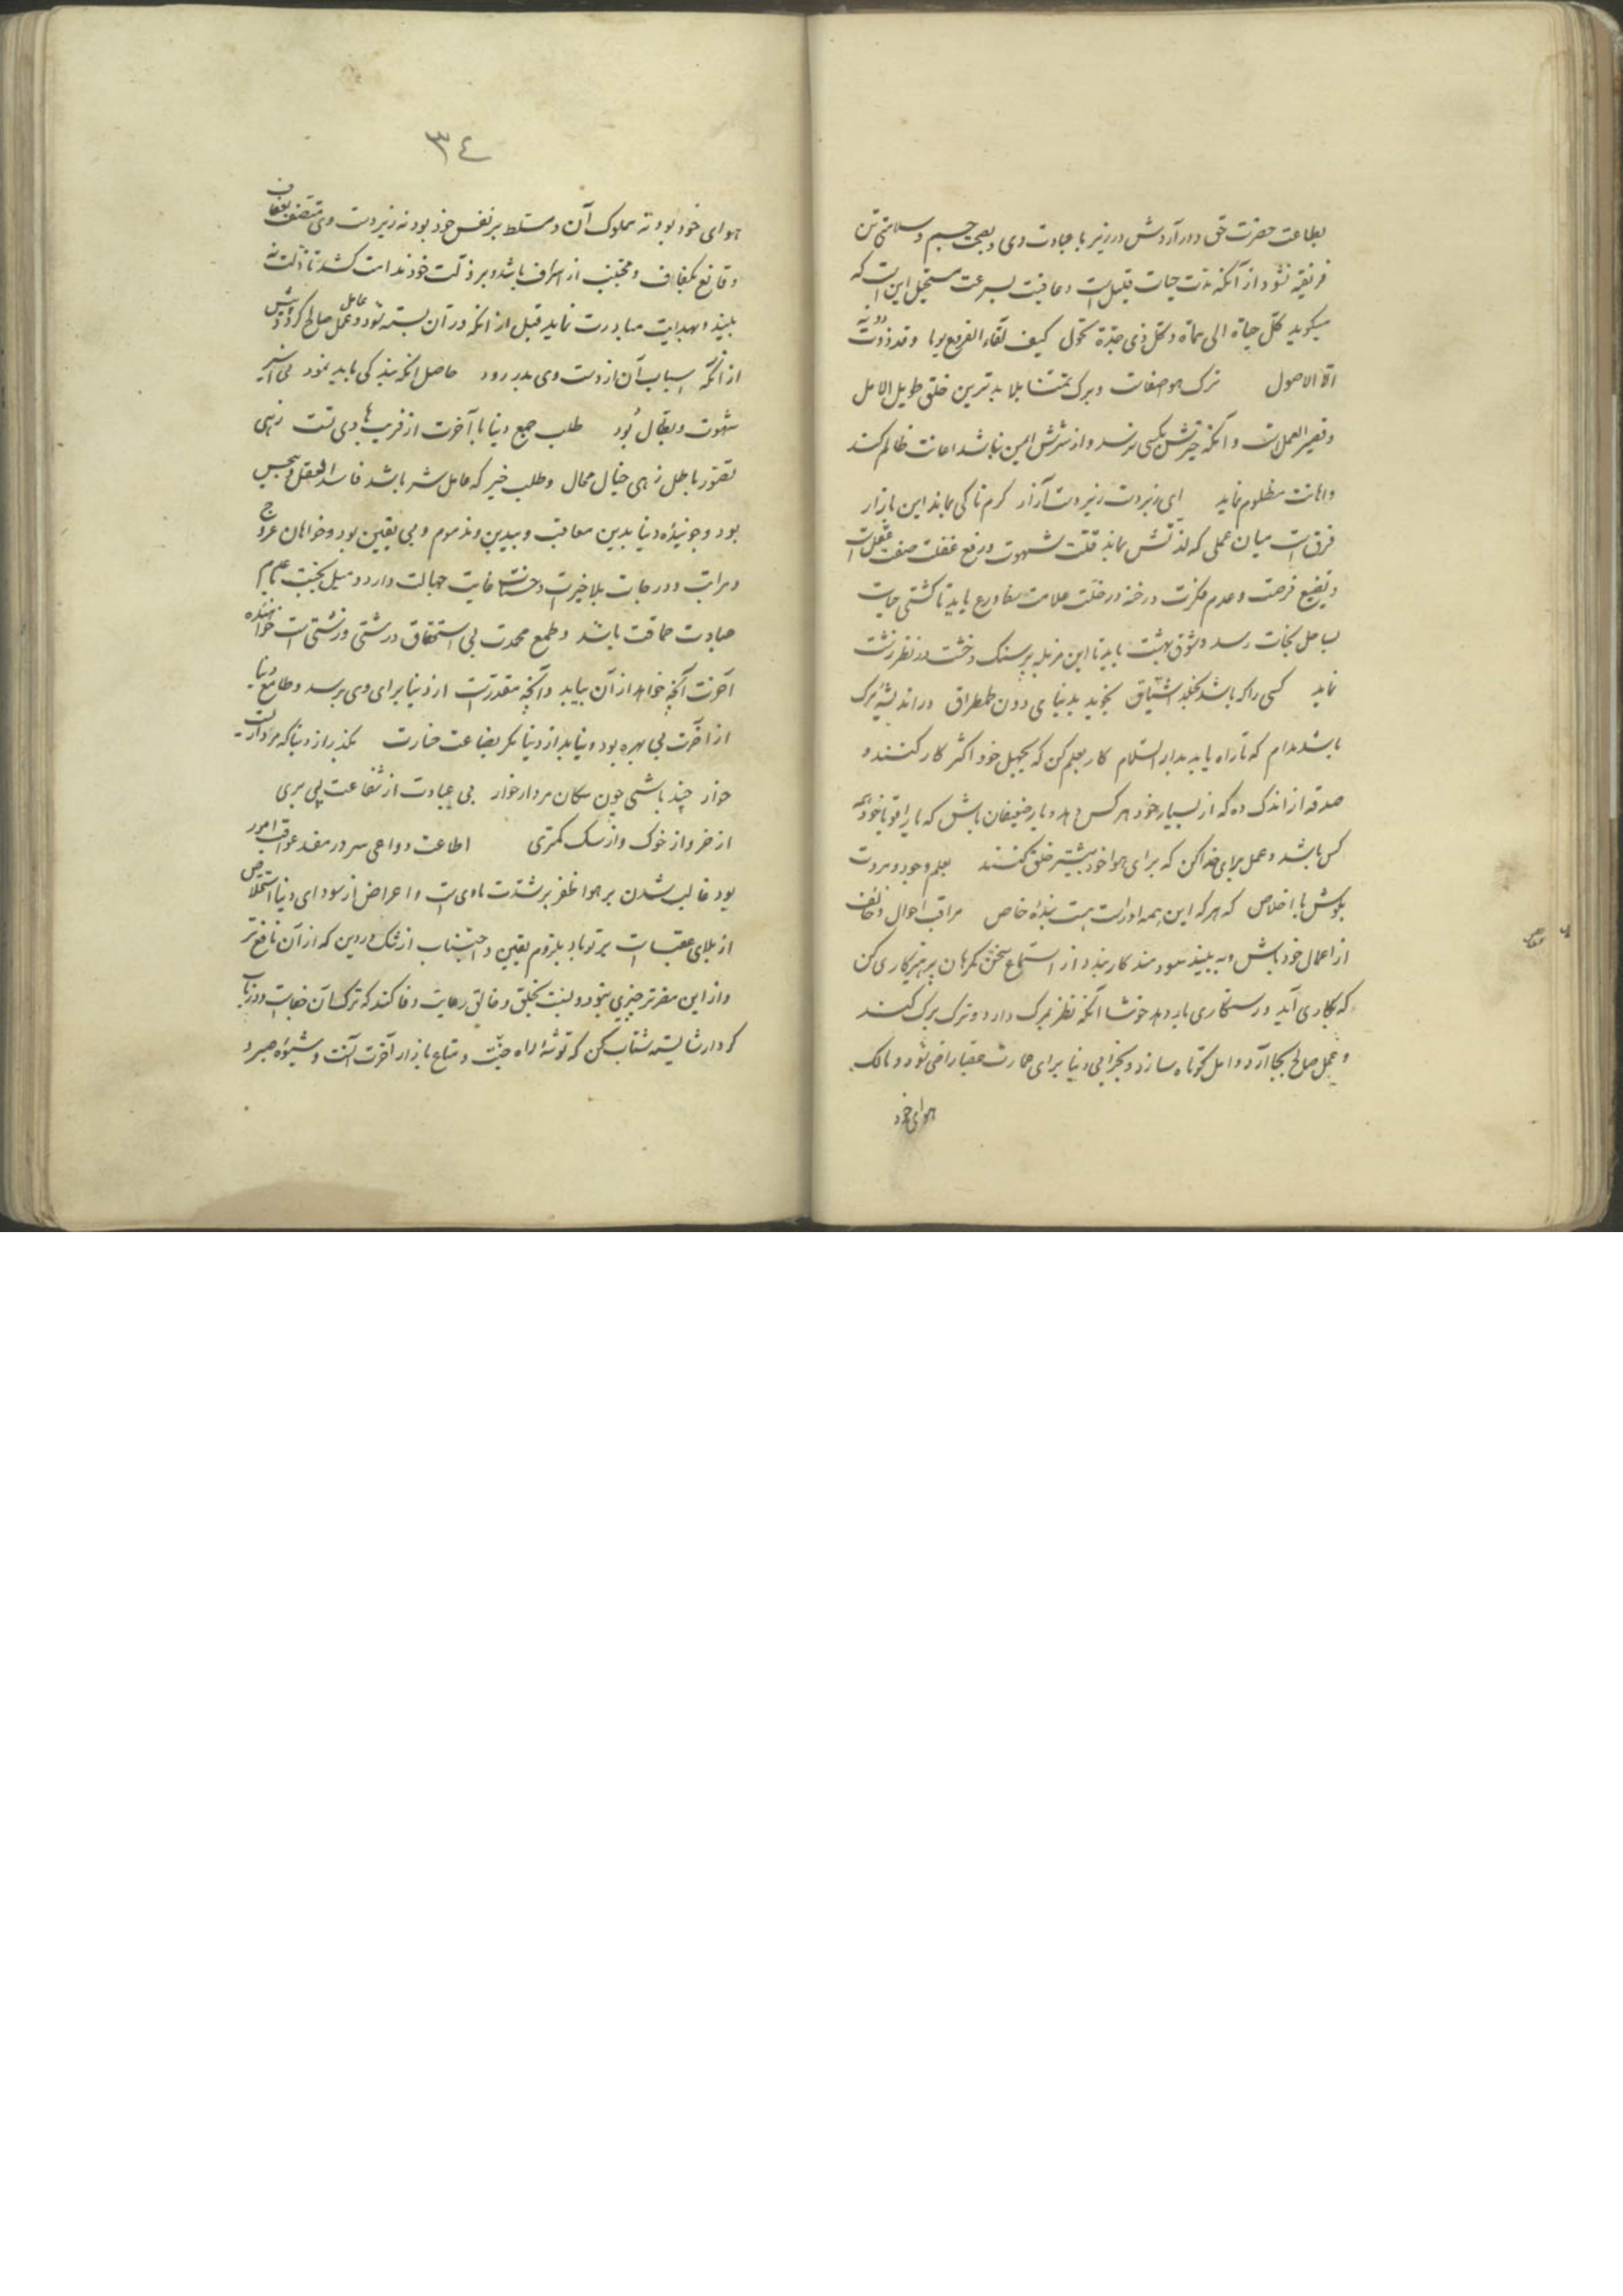 بطاعت حضرت حق در آرد در زیر با عبادت وی و بصحت جسم و سلامتی تن
فریفته نشود از آنکه مدت حیات قلیل است و عافیت بسرعت مستحیل این است که
میگوید کل حیاة الی مماة و کل ذی جدة تحول کیف بقاء الفروع یوما و قد ذوت
الاصول ترک و برک بدترین خلق طویل الامل
و قصیر العمل است و آنکه خیرش بکسی نرسد و از شرش ایمن نباشد اعانت ظالم کند
و اهانت مظلوم نماید ای زبردست زیردست آزار گرم تا کی بماند این بازار
فرق است میان عملی که لذتش نماند قلت شهوت و رفع غفلت صفت عقل است
و تضییع فرصت و عدم فکرت در خلت علامت ورع باید تا کشتی حیات
بساحل نجات رسد و شوق بهشت باید تا این مزبله پر سنگ و خشت در نظر زشت
نماید کسی را که باشد بخلد اشتیاق نجوید بدنیای دون طمطراق در اندیشۀ مرگ
باشد مدام که تا راه یابد بدار السلام کار بعلم کن که بجهل خود اکثر کار کنند و
صدقه از اندک ده که از بسیار خود هر کس دهد و یار ضعیفان باش که یار اقویا خود همه
کس باشد و عمل برای خدا کن که برای هوا خود بیشتر خلق کنند بعلم و جود و مروت
بکوش با اخلاص که هر که این همه او راست هست بندۀ خاص مراقب احوال و خائف
از اعمال خود باش و به پند سودمند کار بند و از استماع سخن گمرهان پرهیزکاری کن
که بکاری آید و رستگاری بار دهد خوشا آنکه نظر بمرگ دارد و ترک برگ کند
و عمل صالح بجا آرد و امل کوتاه سازد و بخرابی دنیا برای عمارت عقبا راضی شود و مالک
هوای خود
٣٤
هوای خود بود نه مملوک آن و مسلط بر نفس خود بود نه زیردست وی متصف بعفاف
و قانع بکفاف و مجتنب از اسراف باشد و بر ذلت خود ندامت کشد تا ذلت نه
بیند و بهدایت مبادرت نماید قبل از آنکه در آن بسته شود و عامل عمل صالح گردد پیش
از آنکه اسباب آن از دست وی بدر رود حاصل آنکه بندگی باید نمود نی اسیر
شهوت و بطال بود طلب جمع دنیا با آخرت از فریبهای دیو تست زهی
تصور باطل زهی خیال محال و طلب خیر که عامل شر باشد فاسد العقل و الحس
بود و جوینده دنیا بدین معاقب و بیدین و مذموم و بی یقین بود و خواهان عروج
مراتب و درجات بلا خیرات و حسنات غایت جهالت دارد و میل بجنت با عدم
عبادت حماقت باشد و طمع محمدت بی استحقاق درشتی و زشتی است خواهنده
آخرت آنچه خواهد از آن بیابد و آنچه مقدر است از دنیا برای وی برسد و طامع دنیا
از آخرت بی بهره بود و نیابد از دنیا مگر بضاعت خسارت بگذر از دنیا که مردار است
خوار چند باشی چون سگان مردار خوار بی عبادت از شفاعت پی بری
از خر و از خوک و از سگ کمتری اطاعت دواعی سر در مفسد عواقب امور
بود غالب شدن بر هوا ظفر بر شدت ماوی است و اعراض از سودای دنیا استخلاص
از بلای عقبا است بر تو باد بلزوم یقین و اجتناب از شک در دین که از آن نافع تر
و از این مضرتر چیزی نبود و نسبت بخلق و خالق رعایت وفا کند که ترک آن
کردار شایسته شتاب کن که توشۀ راه جنت و متاع بازار آخرت آنست و شیوۀ صبر و